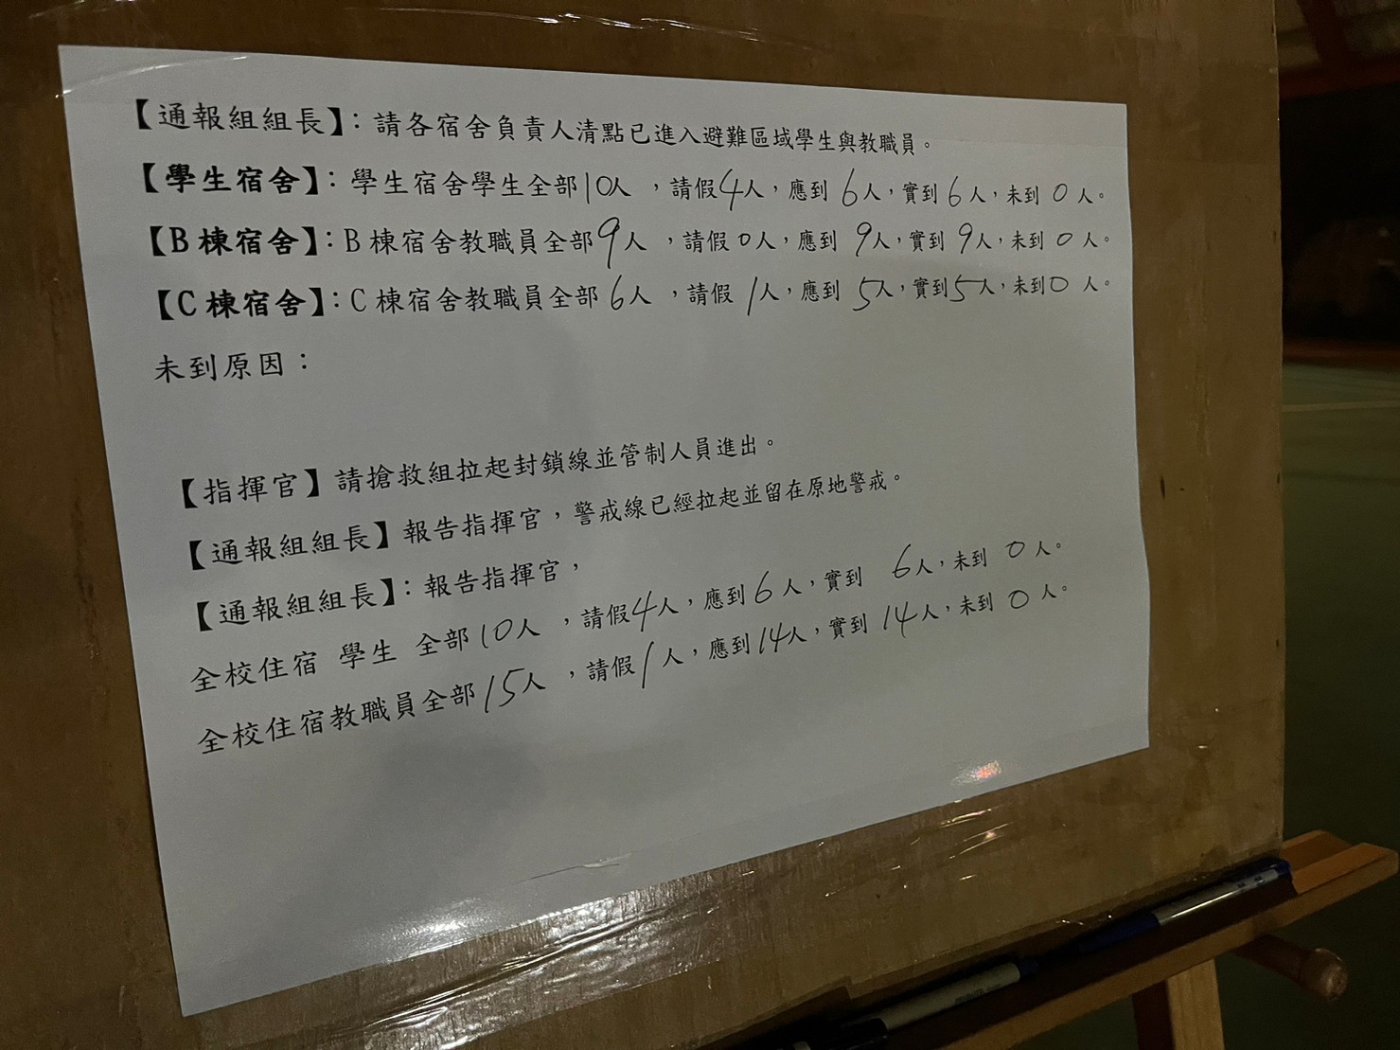 【通報組組長】：請各宿舍負責人清點已進入避難區域學生與教職員。
【學生宿舍】：學生宿舍學生全部10人，請假4人，應到6人，實到6人，未到0人。
【B棟宿舍】：B棟宿舍教職員全部9人，請假0人，應到9人，實到9人，未到0人。
【C棟宿舍】：C棟宿舍教職員全部6人，請假1人，應到5人，實到5人，未到0人。
未到原因：
【指揮官】請搶救組拉起封鎖線並管制人員進出。
【通報組組長】報告指揮官，警戒線已經拉起並留在原地警戒。
【通報組組長】：報告指揮官，
全校住宿 學生 全部10人，請假4人，應到6人，實到6人，未到0人。
全校住宿教職員全部15人，請假1人，應到14人，實到14人，未到0人。